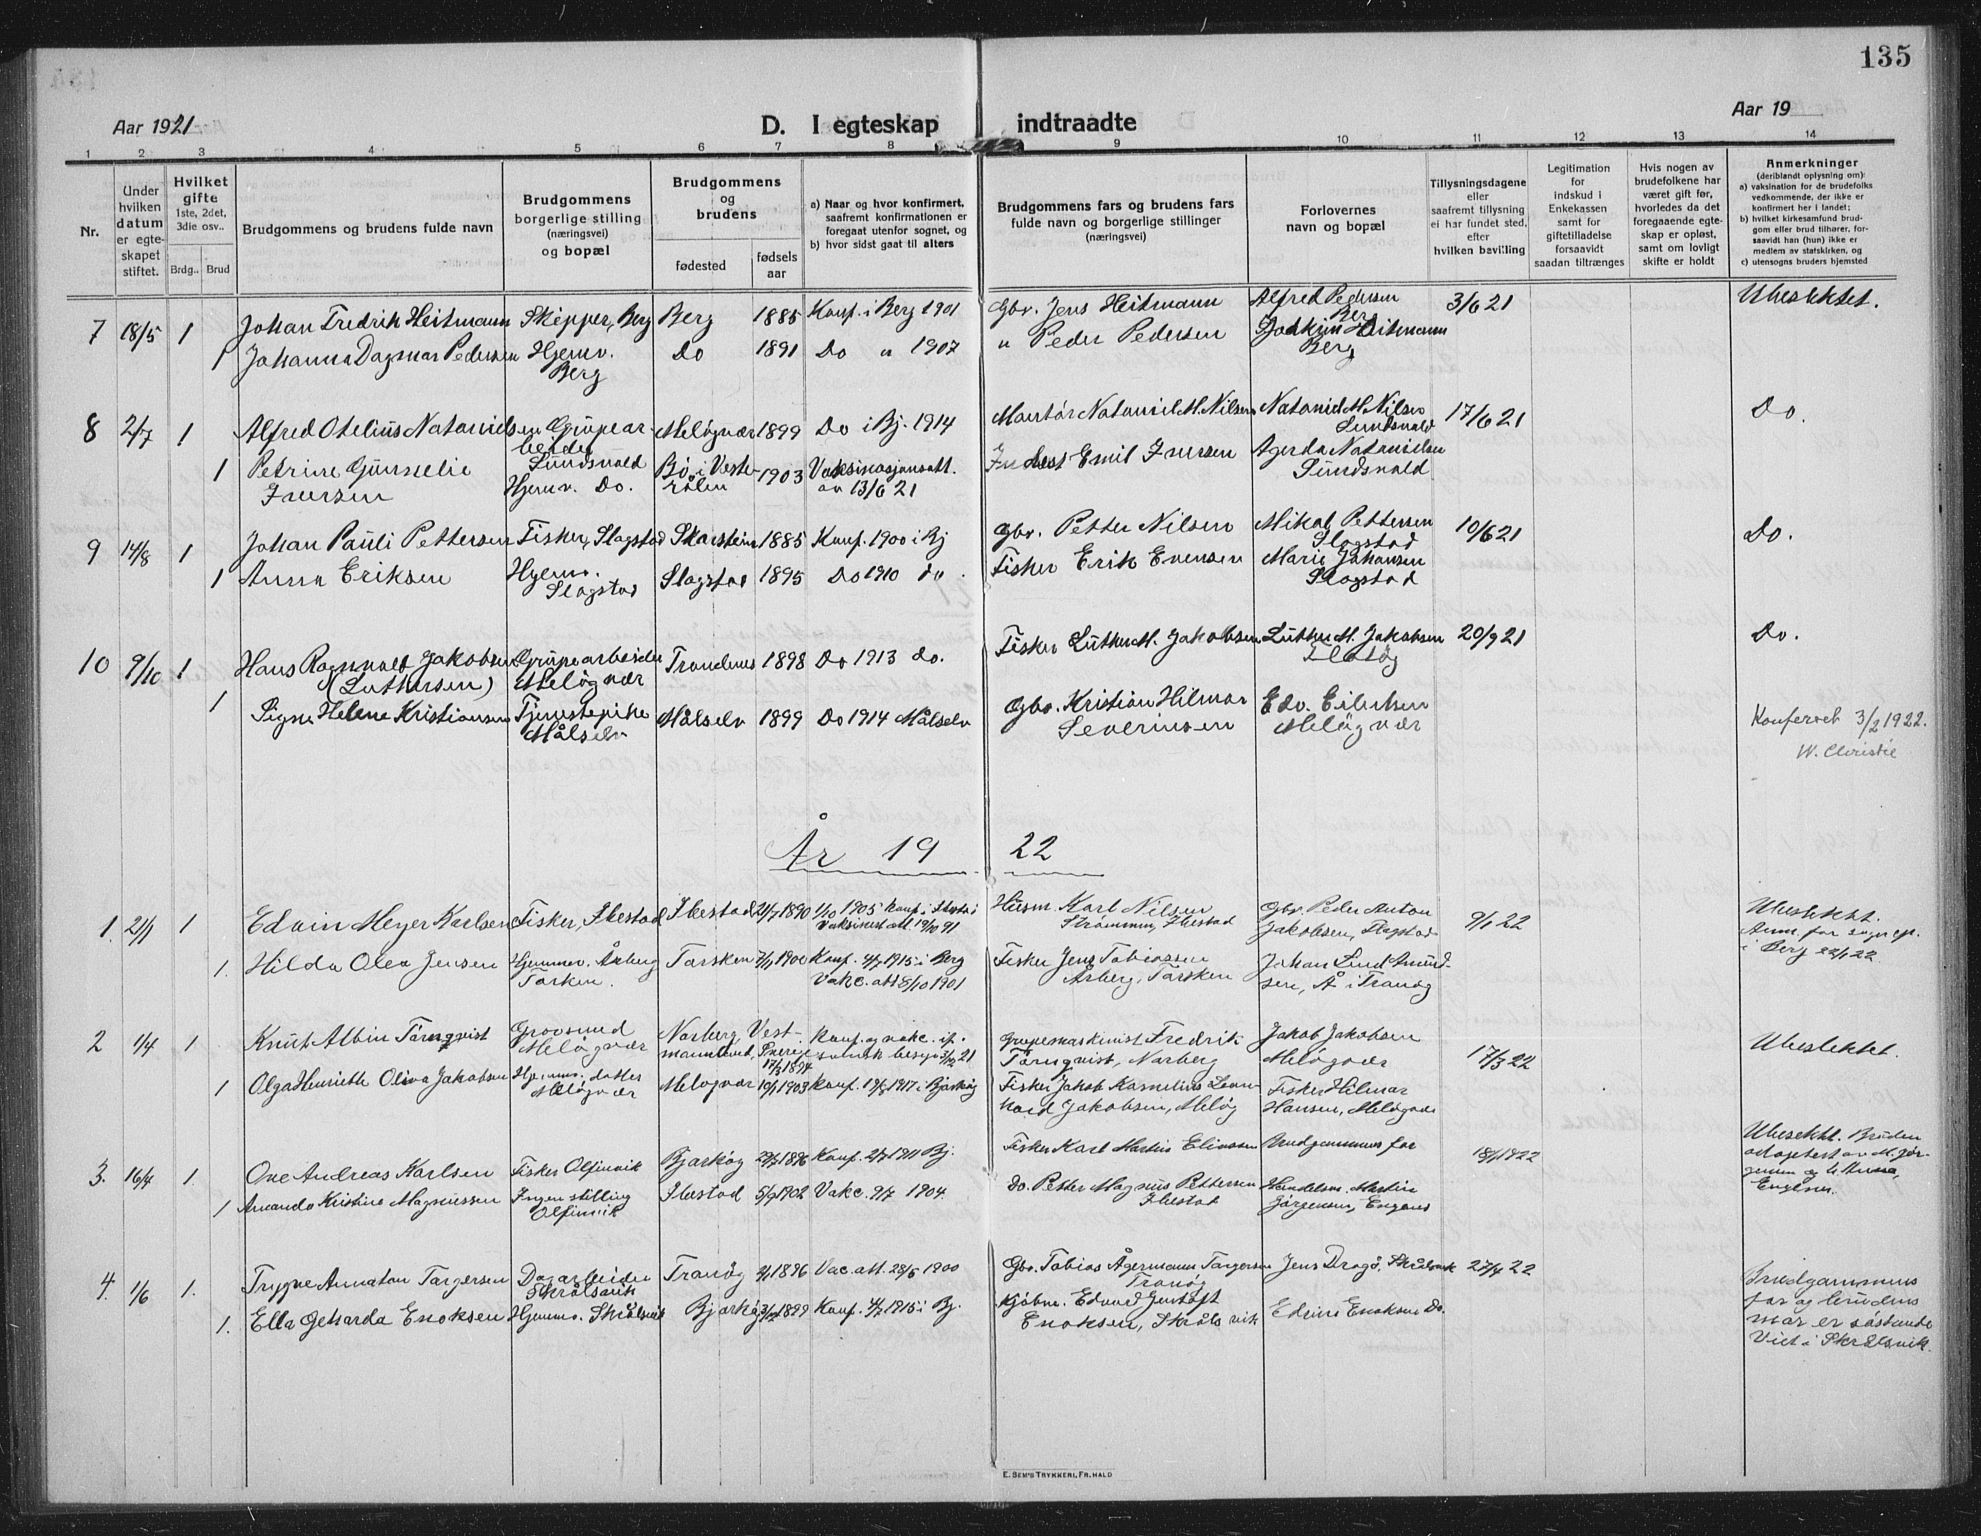 135
Aar 1921
D. I egteskap indtraadte
Aar 19
1 2 3 4 5 6 7 8 9 10 11 12 13 14
Nr.
Under hvilken datum er egte-skapet stiftet.
Hvilket gifte
1ste, 2det, 3die osv..
Brdg.. Brud
Brudgommens og brudens fulde navn
Brudgommens borgerlige stilling (næringsvei) og bopæl
Brudgommens og brudens
fødested
fødsels aar
a) Naar og hvor konfirmert, saafremt konfirmationen er foregaat utenfor sognet, og
b) hvor sidst gaat til alters
Brudgommens fars og brudens fars fulde navn og borgerlige stillinger (næringsvei)
Forlovernes navn og bopæl
Tillysningsdagene eller saafremt tillysning ei har fundet sted, efter hvilken bevilling
Legitimation for indskud i Enkekassen samt for giftetilladelse forsaavidt saadan tiltrænges
Hvis nogen av brudefolkene har været gift før, hvorledes da det foregaaende egte-skap er opløst, samt om lovligt skifte er holdt
Anmerkninger
(deriblandt oplysning om):
a) vaksination for de brudefolks vedkommende, der ikke er konfirmert her i landet;
b) hvilket kirkesamfund brud-gom eller brud tilhører, for-saavidt han (hun) ikke er medlem av statskirken, og
c) utensogns bruders hjemsted
7 18/5 1 Johan Fredrik Heitmann Skipper, Berg Berg 1885 Konf. i Berg 1901 Gbr. Jens Heitmann Alfred Pedersen Berg 3/6 21 Ubeslektet.
1 Johanna Dagmar Pedersen Hjemv. Berg Do 1891 Do " 1907 " Peder Pedersen Joakim Heitmann Berg
8 2/7 1 Alfred Otelius Natanielsen Grubear-beider Sundsvald Meløyvær 1899 Do i Bj. 1914 Natanael M. Nilsen Natanael M. Nilsen Sundsvald 17/6 21 Do.
1 Petrine Gunnelie Iversen Hjemv. Do. Bø i Veste-rålen 1903 Vaksinasjonsatt. av 13/6 21 Emil Iversen Agerda Natanielsen Sundsvald
9 14/8 1 Johan Pauli Pettersen Fisker, Slagstad Skarstein 1885 Konf. 1900 i Bj Gbr. Petter Nilsen Mikal Pettersen Slagstad 10/6 21 Do.
1 Anna Eriksen Hjemv. Slagstad Slagstad 1895 Do 1910 do Fisker Erik Evensen Marie Johansen Slagstad
10 9/10 1 Hans Ragnvald Jakobsen (Luthersen) Grubearbeider Meløyvær Trondenes 1898 Do 1913 do. Fisker Luther M. Jakobsen Luther M. Jakobsen 20/9 21 Do.
1 Signe Helene Kristiansen Tjenestepike Målselv Målselv 1899 Do 1914 Målselv Gbr. Kristian Hilmar Severinsen Edv. Eilertsen Meløyvær
Konferert 3/2 1922.
W. Christie
År 19 22
1. 1 Edvin Meyer Karlsen Fisker, Ibestad Ibestad 1890 1/10 1905 konf. i Ibestad Vaksinest. att. 19/10 91 Husm. Karl Nilsen Strømmen, Ibestad Gbr. Peder Anton Jakobsen, Slagstad 9/1 22 Ubeslekt. Anm. for sognepr. i Berg 22/1 22
1. Hilda Olea Jensen Hjemmev. Årberg Torsken. Torsken 1900 Konf. 4/7 1915 i Berg Vakc. att 5/10 1901 Fisker Jens Tobiassen Årberg, Torsken Johan Lind Amund-sen, Å i Tranøy
2 1/4 1 Knut Albin Törnqvist Grovsmed Meløyvær Norberg Vest-manland, Sverige 17/2 1894 Konf. og vakc. if. svensk besgv 3/12 21 Grubemaskinist Fredrik Törnqvist, Norberg Jakob Jakobsen Meløyvær 17/3 22 Ubeslektet.
1 Olga Henriette Oliva Jakobsen Hjemmev. datter Meløyvær Meløyvær 10/1 1903 Konf. 19/8 1917 i Bjarkøy Fisker Jakob Kornelius Leon-hard Jakobsen, Meløy Fisker Hilmar Hansen, Meløyvær
3. 16/4 1. Ove Andreas Karlsen Fisker Olfinvik Bjarkøy 1896 Konf. 2/7 1911 Bj. Fisker Karl Martin Eliassen Brudgommens far 18/1 1922 Ubeslekt. Bruden adoptert av M. Jør-gensen og h. Anna, Engenes.
1 Amanda Kristine Magnussen Ingen stilling Olfinvik Ibestad 5/9 1902 Vakc. 9/7 1904. Do. Petter Magnus Pettersen Ibestad Handelsm. Martin Jørgensen, Engenes
4. 1/6 1. Trygve Annaton Torgersen Dagarbeider Skrålsvik Tranøy 1896 Vac. att. 28/5 1900 Gbr. Tobias Ågermann Torgersen Tranøy Jens Dragø, Skrålsvik 27/4 22 Brudgommens far og brudens mor er søskende Viet i Skrålsvik.
1. Ella Getharda Enoksen Hjemmev. Skrålsvik Bjarkøy 1899 Konf. 4/7 1915 i Bj. Kjøbm. Edvard Gustaft Enoksen, Skrålsvik Edvine Enoksen Do.
E. SEM'S TRYKKERI, FR. HALD